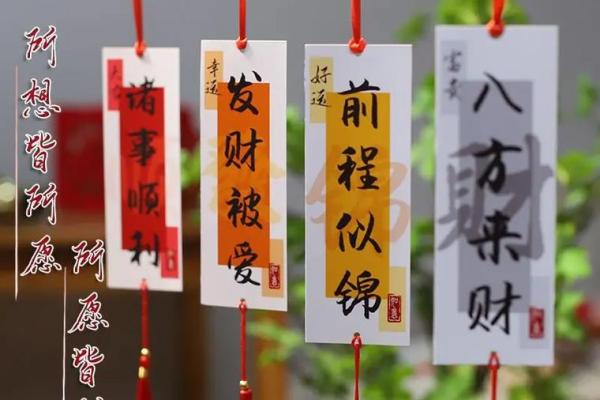 所想皆所愿
所愿皆
诸事顺利
幸运
发财被爱
好运
前程似锦
锦
富贵
八方来财
财